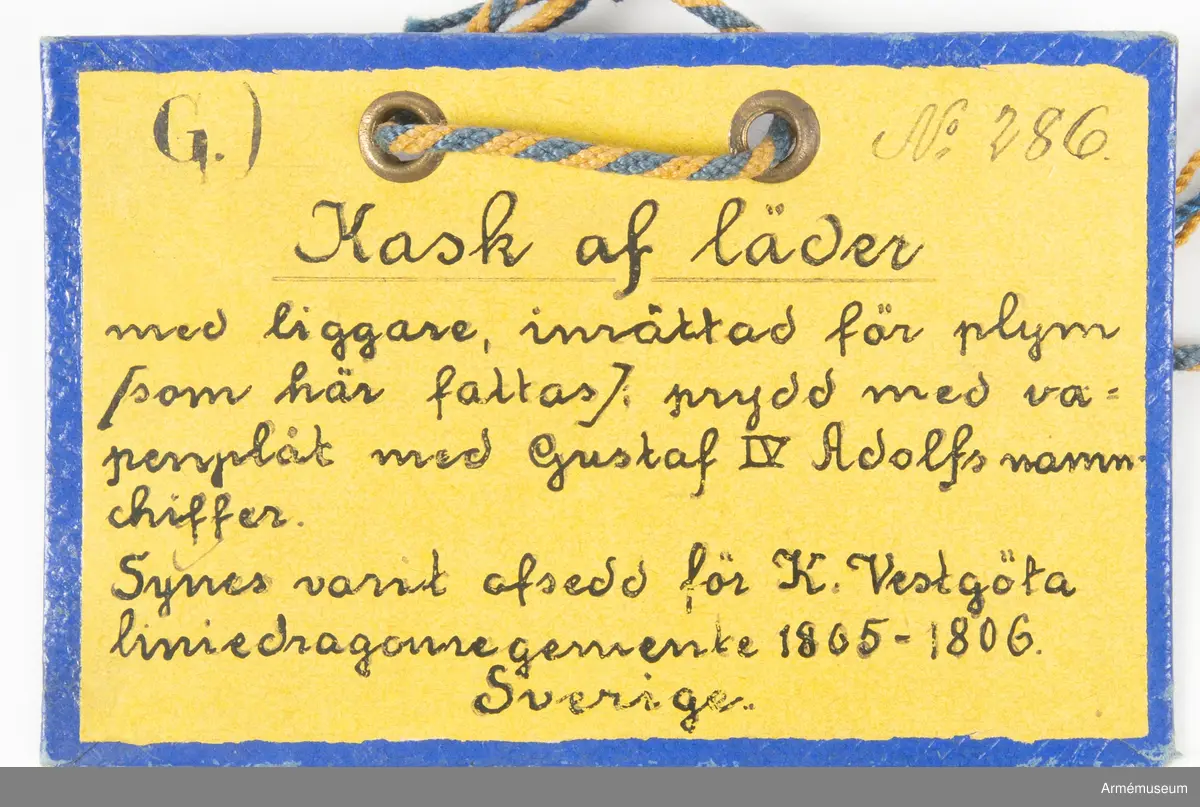 G.) No: 286.
Kask af läder
med liggare, inrättad för plym
[som här fattas]; prydd med va=
penplåt med Gustaf IV Adolfs namn-
chiffer.
Synes varit afsedd för K. Vestgöta
liniedragonregemente 1805-1806.
Sverige.
Armémuseum